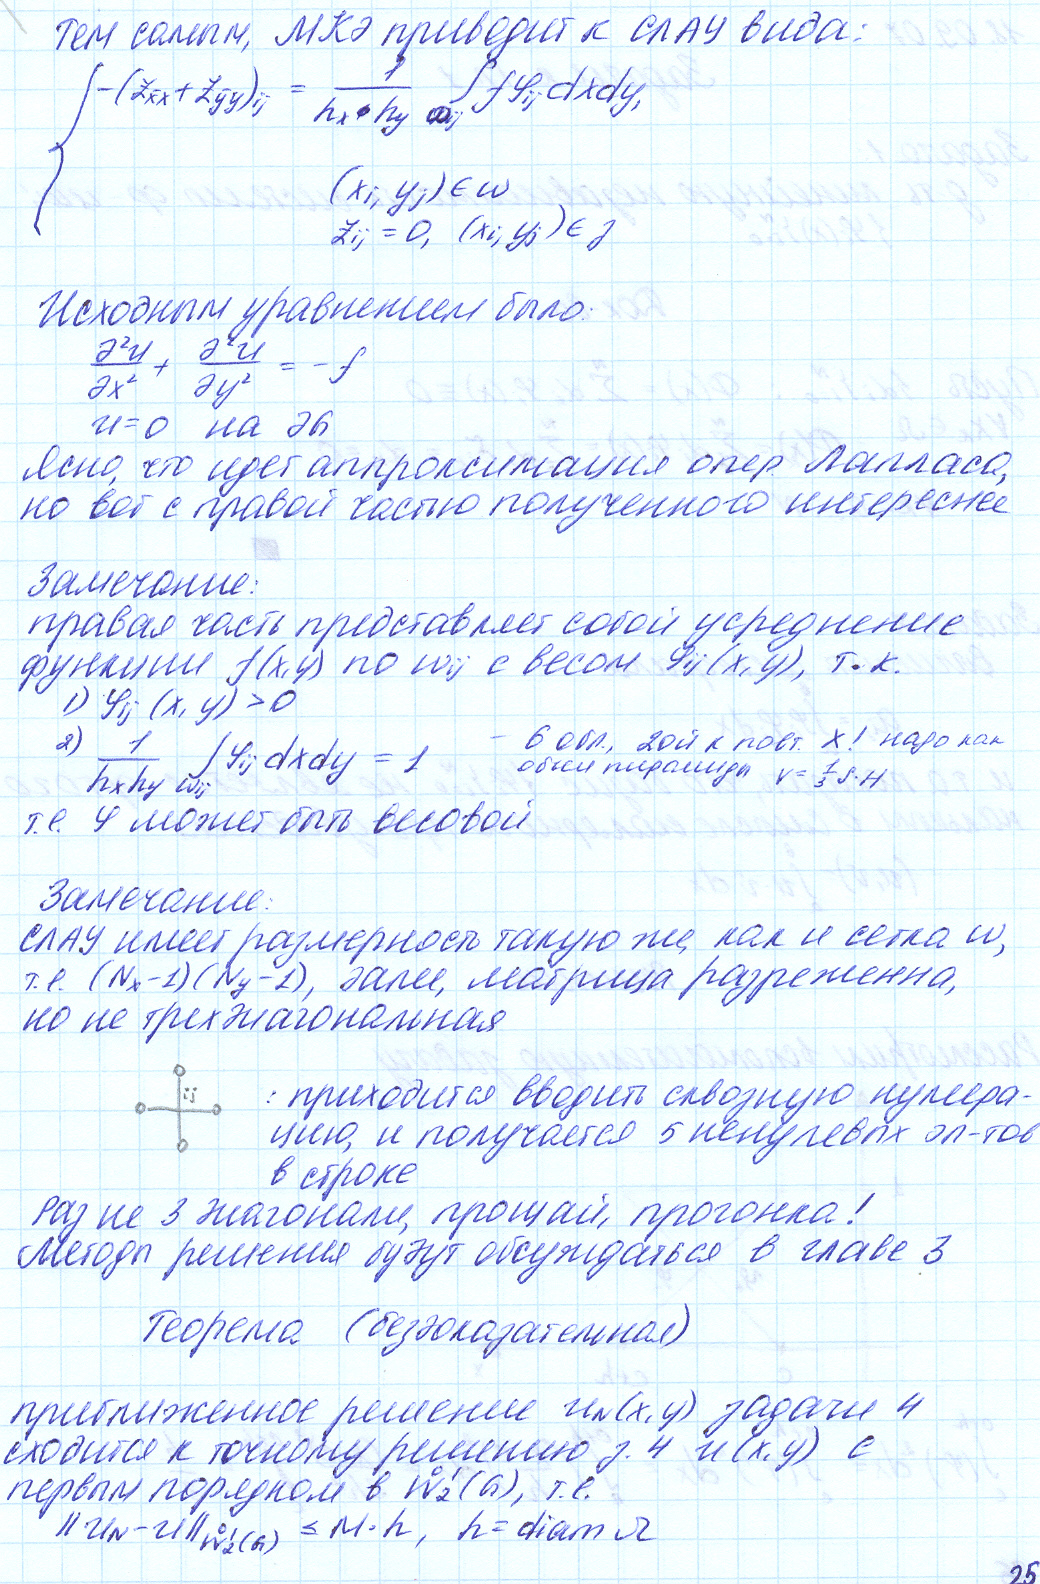 Тем самым, МКЭ приводит к СЛАУ вида:
-(z_x̄x + z_ȳy)_ij = 1/(h_x·h_y) ∫_ω_ij f φ_ij dxdy,
(x_i, y_j) ∈ ω
z_ij = 0, (x_i, y_j) ∈ γ
Исходным уравнением было:
∂²u/∂x² + ∂²u/∂y² = -f
u=0 на ∂G
Ясно, что идет аппроксимация опер. Лапласа,
но вот с правой частью полученного интереснее
Замечание:
правая часть представляет собой усреднение
функции f(x,y) по ω_ij с весом φ_ij (x, y), т. к.
1) φ_ij (x, y) > 0
2) 1/(h_x h_y) ∫_ω_ij φ_ij dxdy = 1 - 6 обл., 2ой к повт. X! надо как
объем пирамиды V = 1/3 S·H
т.е. φ может быть весовой
Замечание:
СЛАУ имеет размерность такую же, как и сетка ω,
т.е. (N_x-1)(N_y-1), далее, матрица разреженна,
но не трехдиагональная
ij : приходится вводить сквозную нумера-
цию, и получается 5 ненулевых эл-тов
в строке
Раз не 3 диагонали, прощай, прогонка!
Методы решения будут обсуждаться в главе 3
Теорема (бездоказательная)
приближенное решение u_N(x,y) задачи 4
сходится к точному решению з. 4 u(x,y) с
первым порядком в W̊₂¹(G), т.е.
||u_N - u||_W̊₂¹(G) ≤ M·h, h = diam Ω
25